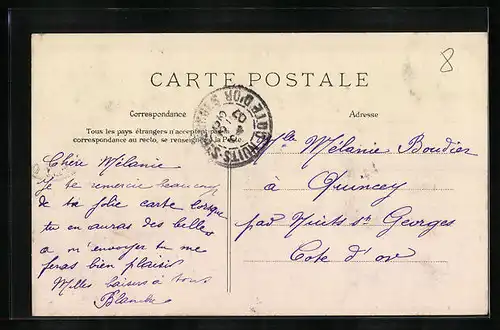 8
CARTE POSTALE
Correspondance
Tous les pays étrangers n'acceptent pas
correspondance au recto, se rensei à la Poste.
Adresse
NUITS-S COTE D'OR
Chère Mélanie
Je te remercie beaucoup
de ta jolie carte lorsque
tu en auras des belles
a m'envoyer tu me
feras bien plaisir
Milles baisers à tous
Blanche
Mlle Mélanie Boudier
à Quincey
par Nuits St Georges
Cote d'or